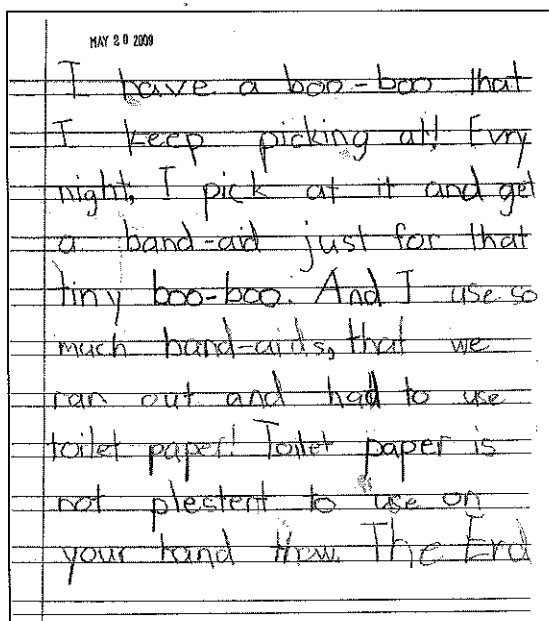 MAY 20 2009
I have a boo-boo that
I keep picking at! Evry
night, I pick at it and get
a band-aid just for that
tiny boo-boo. And I use so
much band-aids, that we
ran out and had to use
toilet paper! Toilet paper is
not plestent to use on
your hand thow. The End